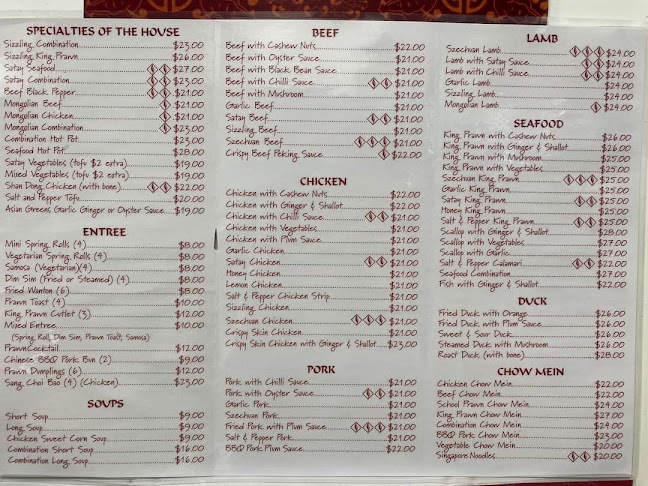 SPECIALTIES OF THE HOUSE
Sizzling Combination $23.00
Sizzling King Prawn $26.00
Satay Seafood $27.00
Satay Combination $23.00
Beef Black Pepper $21.00
Mongolian Beef $21.00
Mongolian Chicken $21.00
Mongolian Combination $23.00
Combination Hot Pot $23.00
Seafood Hot Pot $28.00
Satay Vegetables (tofu $2 extra) $19.00
Mixed Vegetables (tofu $2 extra) $19.00
Shan Dong Chicken (with bone) $22.00
Salt and Pepper Tofu $20.00
Asian Greens Garlic Ginger or Oyster Sauce $19.00
ENTREE
Mini Spring Rolls (4) $8.00
Vegetarian Spring Rolls (4) $8.00
Samosa (Vegetarian)(4) $8.00
Dim Sim (Fried or Steamed) (4) $8.00
Fried Wanton (6) $8.00
Prawn Toast (4) $10.00
King Prawn Cutlet (3) $12.00
Mixed Entree $10.00
(Spring Roll, Dim Sim, Prawn Toast, Samosa)
Prawn Cocktail $12.00
Chinese BBQ Pork Bun (2) $9.00
Prawn Dumplings (6) $12.00
Sang Choi Bao (4) (Chicken) $23.00
SOUPS
Short Soup $9.00
Long Soup $9.00
Chicken Sweet Corn Soup $9.00
Combination Short Soup $16.00
Combination Long Soup $16.00
BEEF
Beef with Cashew Nuts $22.00
Beef with Oyster Sauce $21.00
Beef with Black Bean Sauce $21.00
Beef with Chilli Sauce $21.00
Beef with Mushroom $21.00
Garlic Beef $21.00
Satay Beef $21.00
Sizzling Beef $21.00
Szechuan Beef $21.00
Crispy Beef Peking Sauce $22.00
CHICKEN
Chicken with Cashew Nuts $22.00
Chicken with Ginger & Shallot $22.00
Chicken with Chilli Sauce $21.00
Chicken with Vegetables $21.00
Chicken with Plum Sauce $21.00
Garlic Chicken $21.00
Satay Chicken $21.00
Honey Chicken $21.00
Lemon Chicken $21.00
Salt & Pepper Chicken Strip $21.00
Sizzling Chicken $21.00
Szechuan Chicken $21.00
Crispy Skin Chicken $21.00
Crispy Skin Chicken with Ginger & Shallot $23.00
PORK
Pork with Chilli Sauce $21.00
Pork with Oyster Sauce $21.00
Garlic Pork $21.00
Szechuan Pork $21.00
Fried Pork with Plum Sauce $21.00
Salt & Pepper Pork $21.00
BBQ Pork Plum Sauce $22.00
LAMB
Szechuan Lamb $24.00
Lamb with Satay Sauce $24.00
Lamb with Chilli Sauce $24.00
Garlic Lamb $24.00
Sizzling Lamb $24.00
Mongolian Lamb $24.00
SEAFOOD
King Prawn with Cashew Nuts $26.00
King Prawn with Ginger & Shallot $26.00
King Prawn with Mushroom $25.00
King Prawn with Vegetables $25.00
Szechuan King Prawn $25.00
Garlic King Prawn $25.00
Satay King Prawn $25.00
Honey King Prawn $25.00
Salt & Pepper King Prawn $25.00
Scallop with Ginger & Shallot $28.00
Scallop with Vegetables $27.00
Scallop with Garlic $27.00
Salt & Pepper Calamari $22.00
Seafood Combination $27.00
Fish with Ginger & Shallot $22.00
DUCK
Fried Duck with Orange $26.00
Fried Duck with Plum Sauce $26.00
Sweet & Sour Duck $26.00
Steamed Duck with Mushroom $26.00
Roast Duck (with bone) $28.00
CHOW MEIN
Chicken Chow Mein $22.00
Beef Chow Mein $22.00
School Prawn Chow Mein $24.00
King Prawn Chow Mein $27.00
Combination Chow Mein $24.00
BBQ Pork Chow Mein $23.00
Vegetable Chow Mein $20.00
Singapore Noodles $20.00